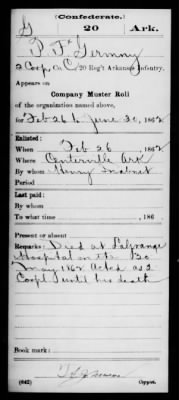 (Confederate.)
G 20 Ark.
P. F. Germany
2 Corp, Co. C, 20 Reg't Arkansas Infantry.
Appears on
Company Muster Roll
of the organization named above,
for Feb 26 to June 30, 1862.
Enlisted:
When Feb 26, 1862
Where Centerville Ark
By whom Henry
Period
Last paid:
By whom
To what time , 186 .
Present or absent
Remarks: Died at LaGrange
Hospital on the 30
May 1862 Acted as 2
Corpl until his death
Book mark:
(642) Copyist.